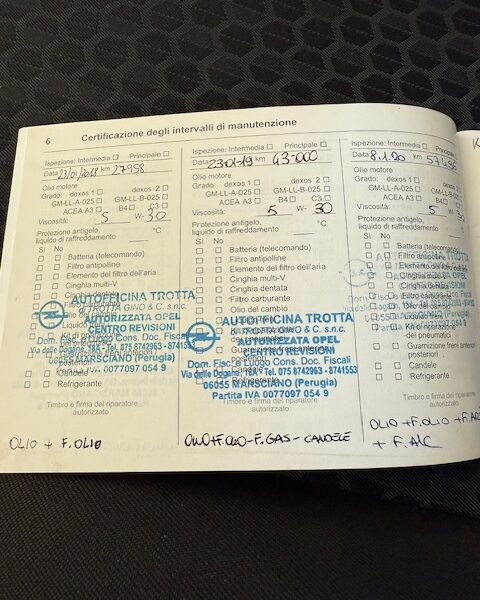 6 Certificazione degli intervalli di manutenzione
Ispezione: Intermedia Principale
Data 23/01/2018 km 27958
Olio motore
Grado: dexos 1 dexos 2
GM-LL-A-025 GM-LL-B-025
ACEA A3 B4 C3
Viscosità: 5 W- 30
Protezione antigelo,
liquido di raffreddamento °C
Sì No
Batteria (telecomando)
Filtro antipolline
Elemento del filtro dell'aria
Cinghia multi-V
AUTOFFICINA TROTTA
di TROTTA GINO & C. s.n.c.
AUTORIZZATA OPEL
CENTRO REVISIONI
Dom. Fisc. e Luogo Cons. Doc. Fiscali
Via delle Dogane, 18A - Tel. 075 8742963 - 8741553
06055 MARSCIANO (Perugia)
Partita IVA 0077097 054 9
Refrigerante
Timbro e firma del riparatore
autorizzato
OLIO + F.OLIO
Ispezione: Intermedia Principale
Data 23-01-19 km 43-000
Olio motore
Grado: dexos 1 dexos 2
GM-LL-A-025 GM-LL-B-025
ACEA A3 B4 C3
Viscosità: 5 W- 30
Protezione antigelo,
liquido di raffreddamento °C
Sì No
Batteria (telecomando)
Filtro antipolline
Elemento del filtro dell'aria
Cinghia multi-V
Cinghia dentata
Filtro carburante
Olio del cambio
AUTOFFICINA TROTTA
di TROTTA GINO & C. s.n.c.
AUTORIZZATA OPEL
CENTRO REVISIONI
Dom. Fisc. e Luogo Cons. Doc. Fiscali
Via delle Dogane, 18A - Tel. 075 8742963 - 8741553
06055 MARSCIANO (Perugia)
Partita IVA 0077097 054 9
Timbro e firma del riparatore
autorizzato
OLIO+F.OLIO-F.GAS-CANDELE
Ispezione: Intermedia Principale
Data 8.1.20 km
Olio motore
Grado: dexos 1 dexos 2
GM-LL-A-025 GM-LL-B-025
ACEA A3 B4 C3
Viscosità: 5 W- 30
Protezione antigelo,
liquido di raffreddamento °C
Sì No
Batteria (telecomando)
Filtro antipolline
Elemento del filtro
Cinghia multi-V
Cinghia dentata
Filtro carburante
Olio del cambio
Kit di riparazione
dei pneumatici
Guarnizione freni anteriori
posteriori
Candele
Refrigerante
Timbro e firma del riparatore
autorizzato
OLIO+F.OLIO+F.
+ F.A/C